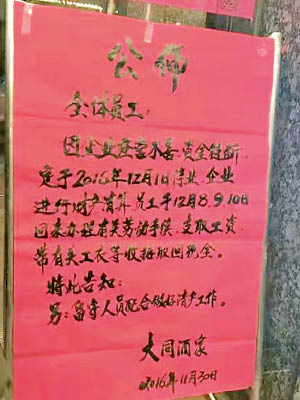 公布
全体员工:
因企业经营不善、资金链断,
定于2016年12月1日停业,企业
进行财产清算,员工于12月8.9.10日
回来办理有关劳动手续,支取工资,
带有关工衣等收据取回现金。
特此告知!
另:留守人员配合做好清产工作。
大同酒家
2016年11月30日